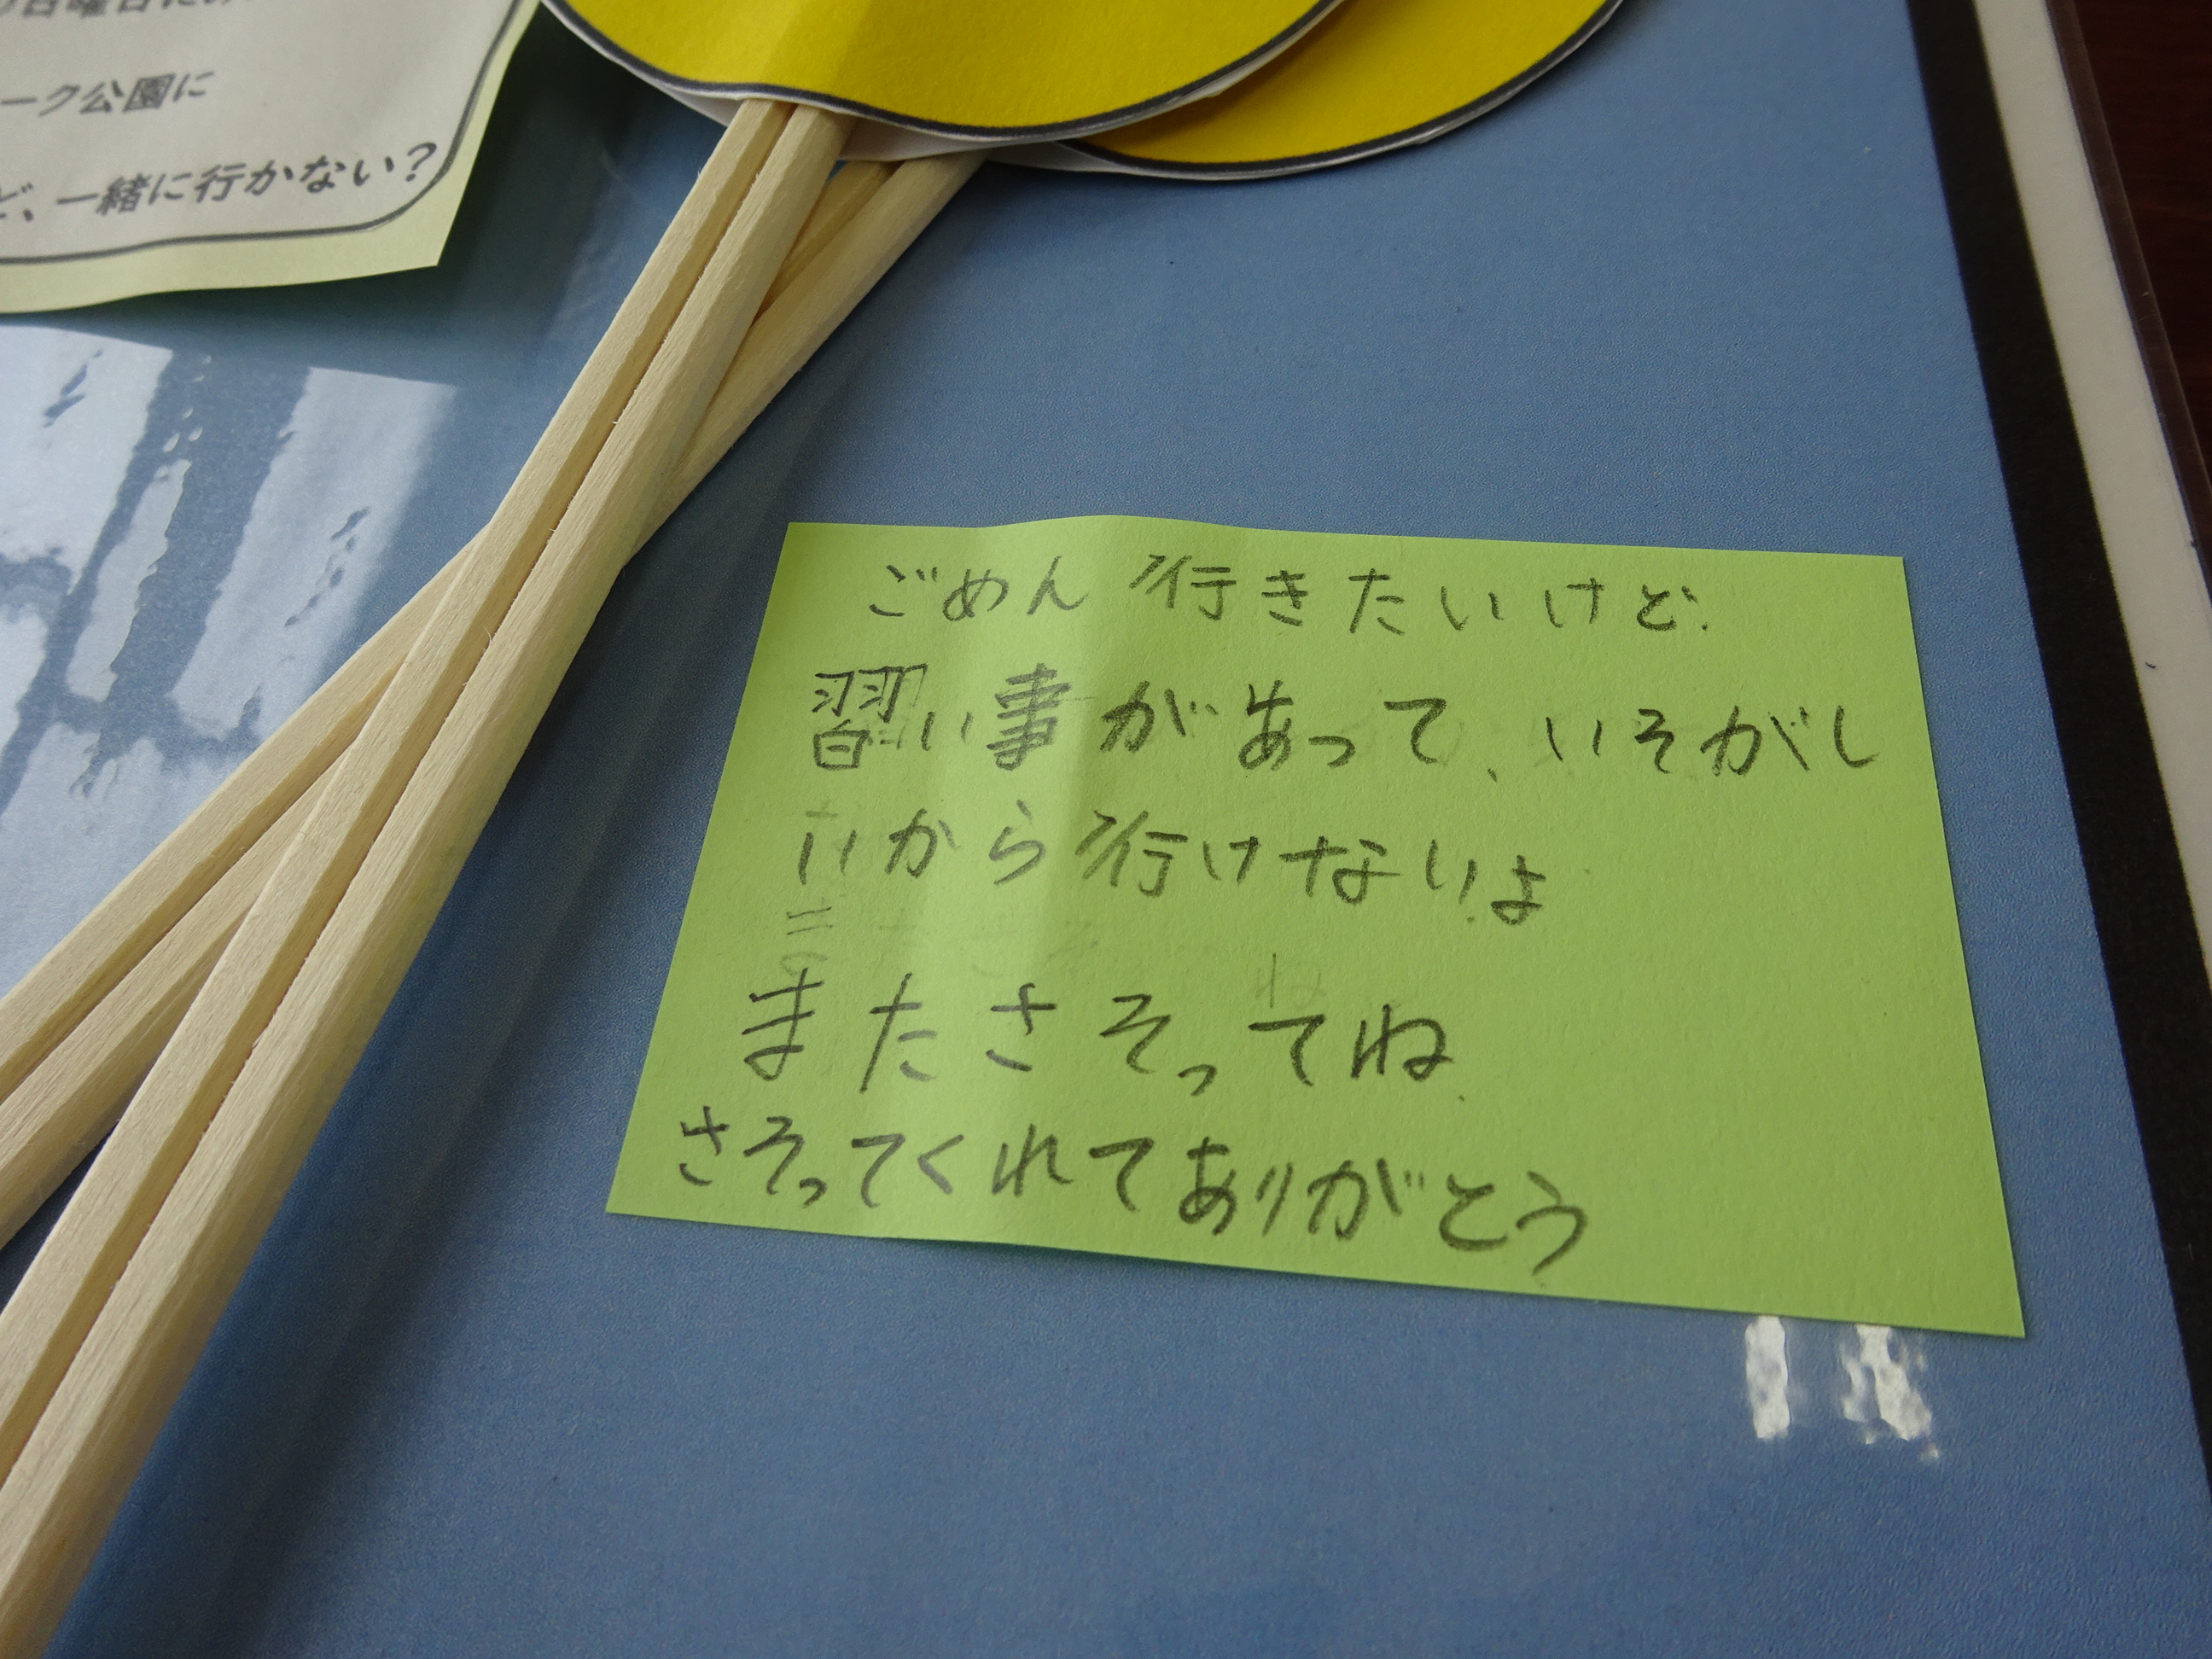 日曜日に
ーク公園に
ど、一緒に行かない?
ごめん行きたいけど、
習い事があって、いそがし
いから行けないよ
またさそってね
さそってくれてありがとう